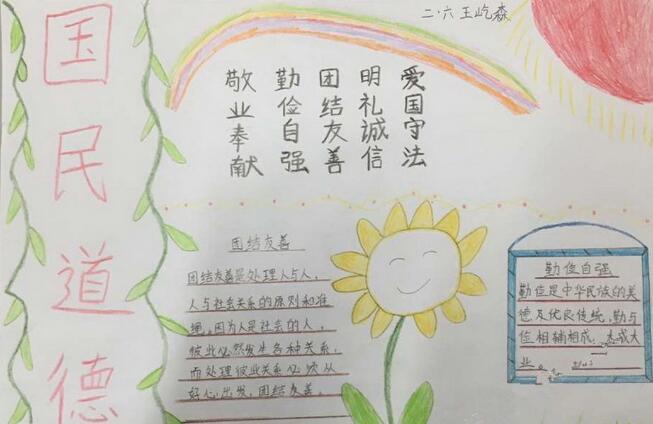 国民道德
二·六 王屹森
爱国守法
明礼诚信
团结友善
勤俭自强
敬业奉献
团结友善
团结友善是处理人与人、
人与社会关系的原则和准
绳,因为人是社会的人,
彼此必然发生各种关系,
而处理彼此关系必须从
好心出发,团结友善。
勤俭自强
勤俭是中华民族的美
德及优良传统,勤与
俭相辅相成,
业。